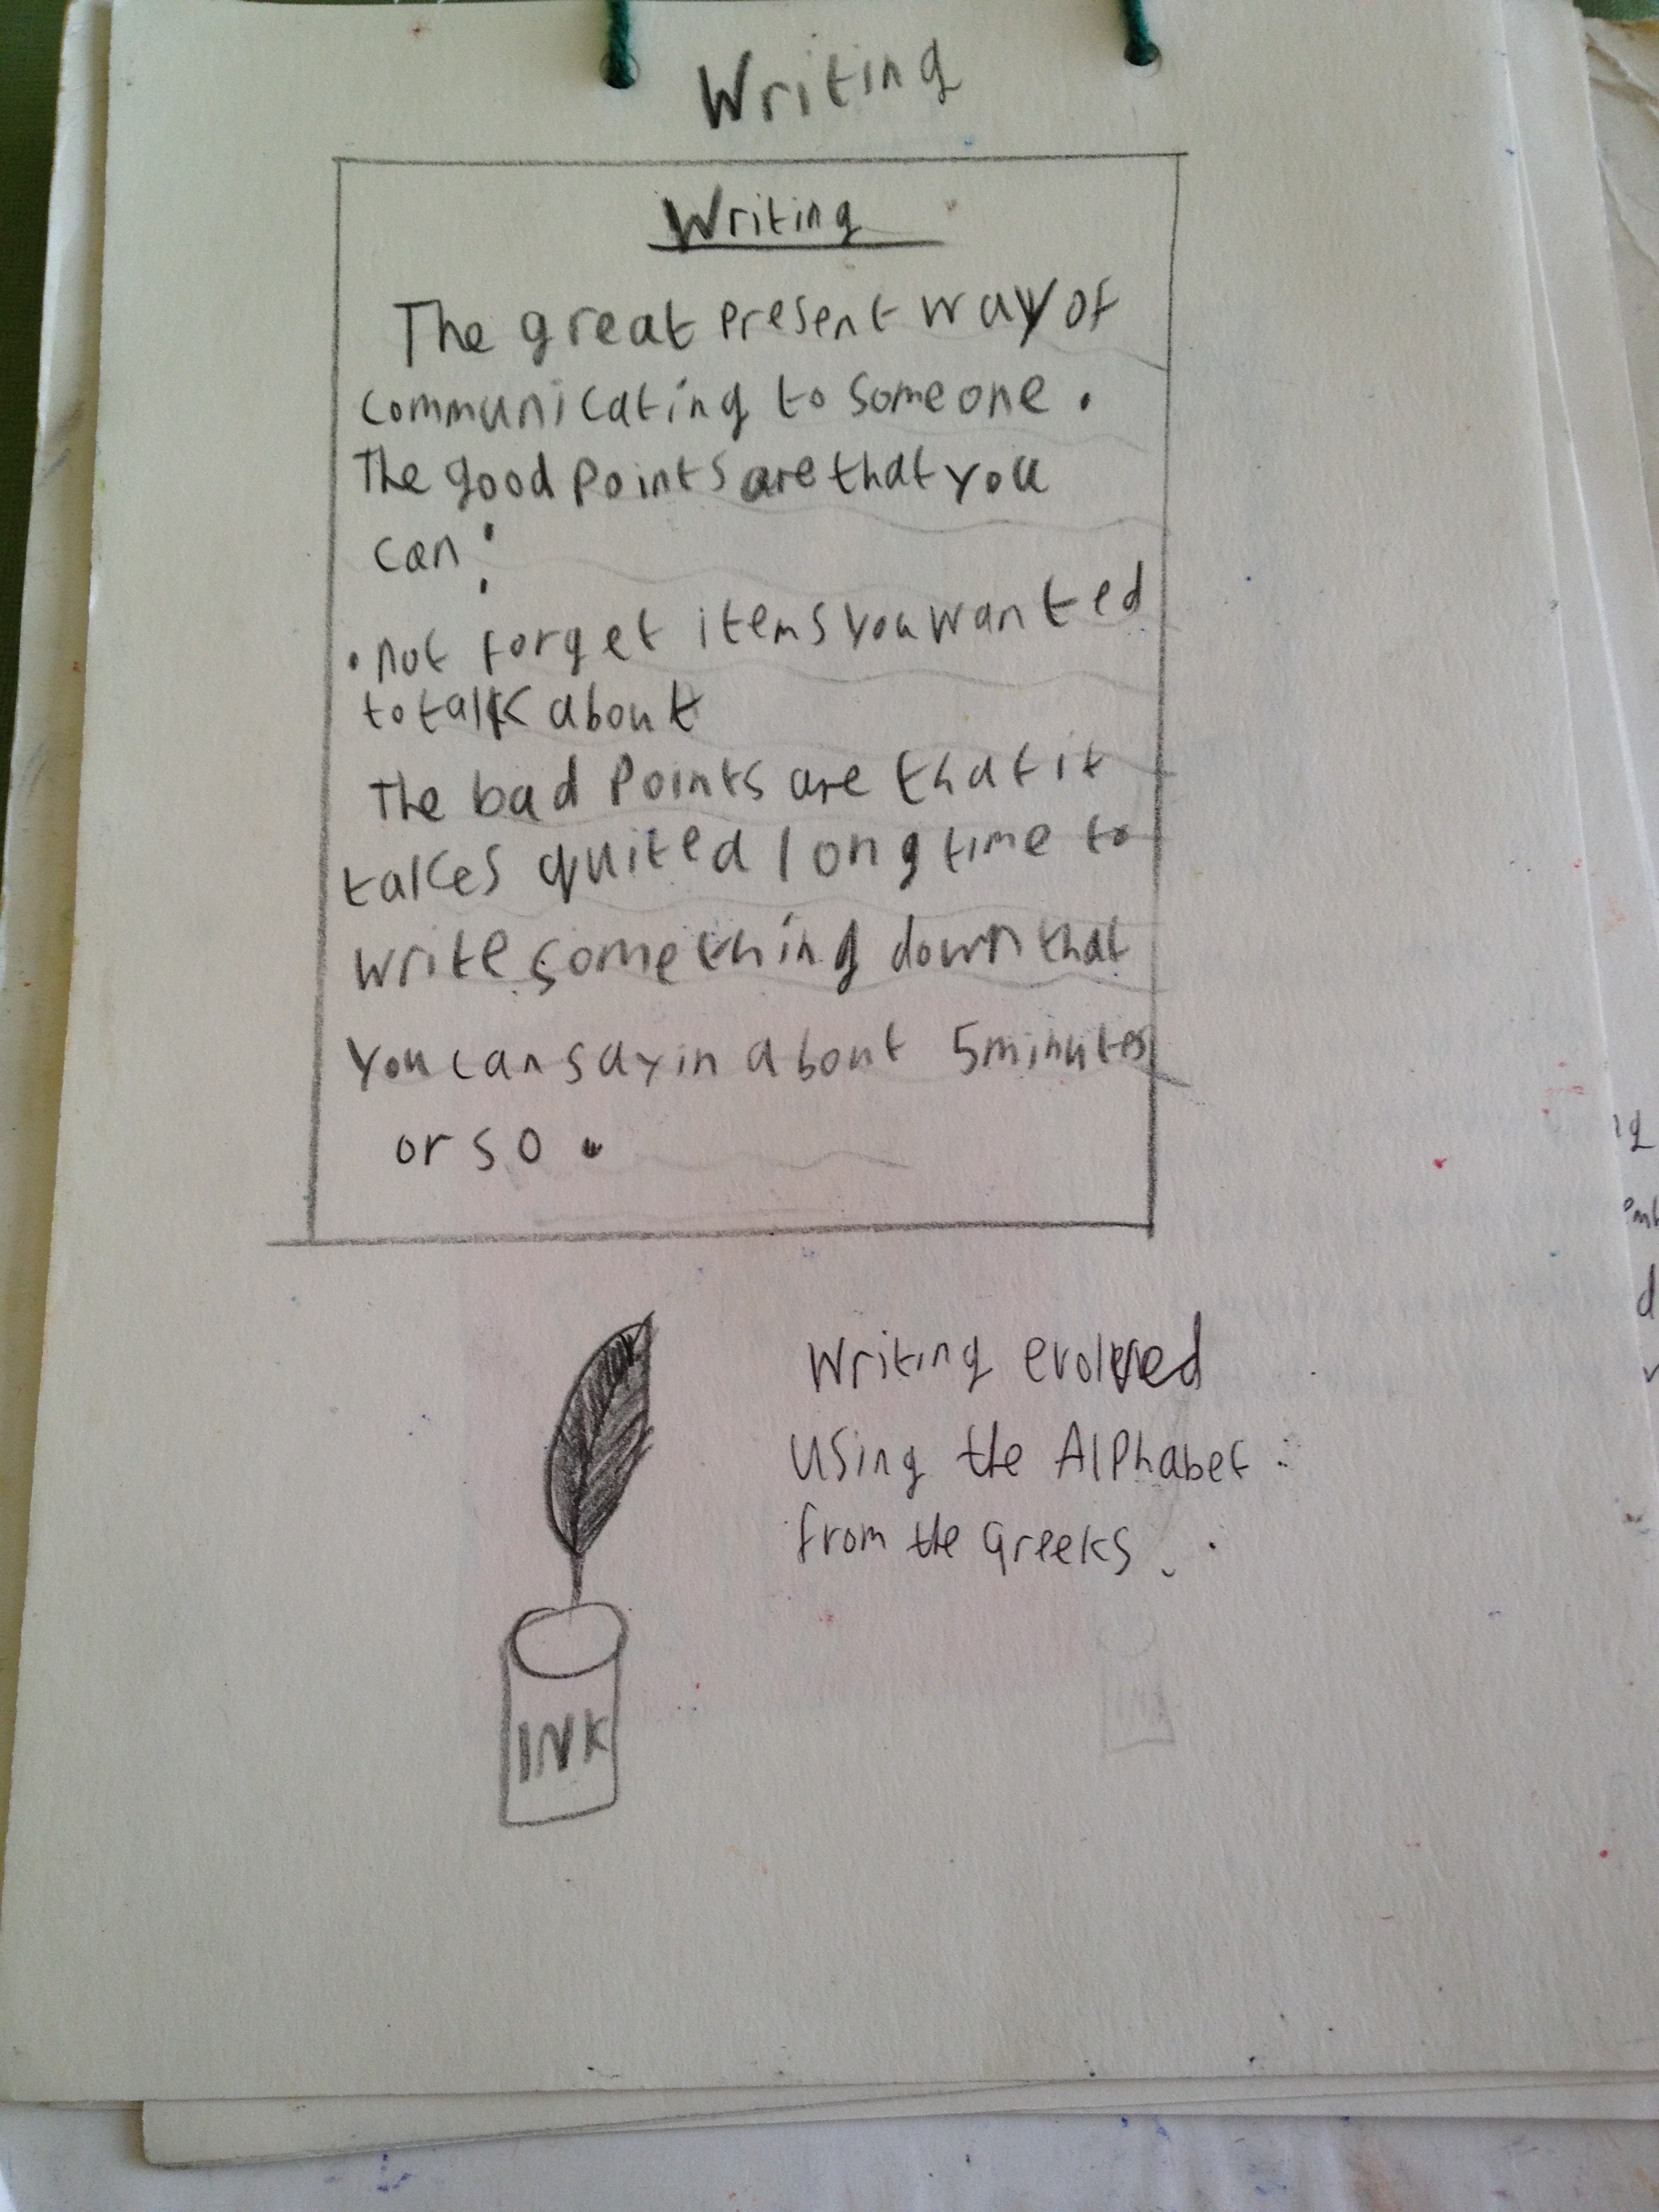 Writing
Writing
The great present way of
communicating to someone.
The good points are that you
can:
• not forget items you wanted
to talk about
The bad points are that it
takes quite a long time to
write something down that
you can say in about 5 minutes
or so.
Writing evolved
using the Alphabet
from the Greeks.
INK